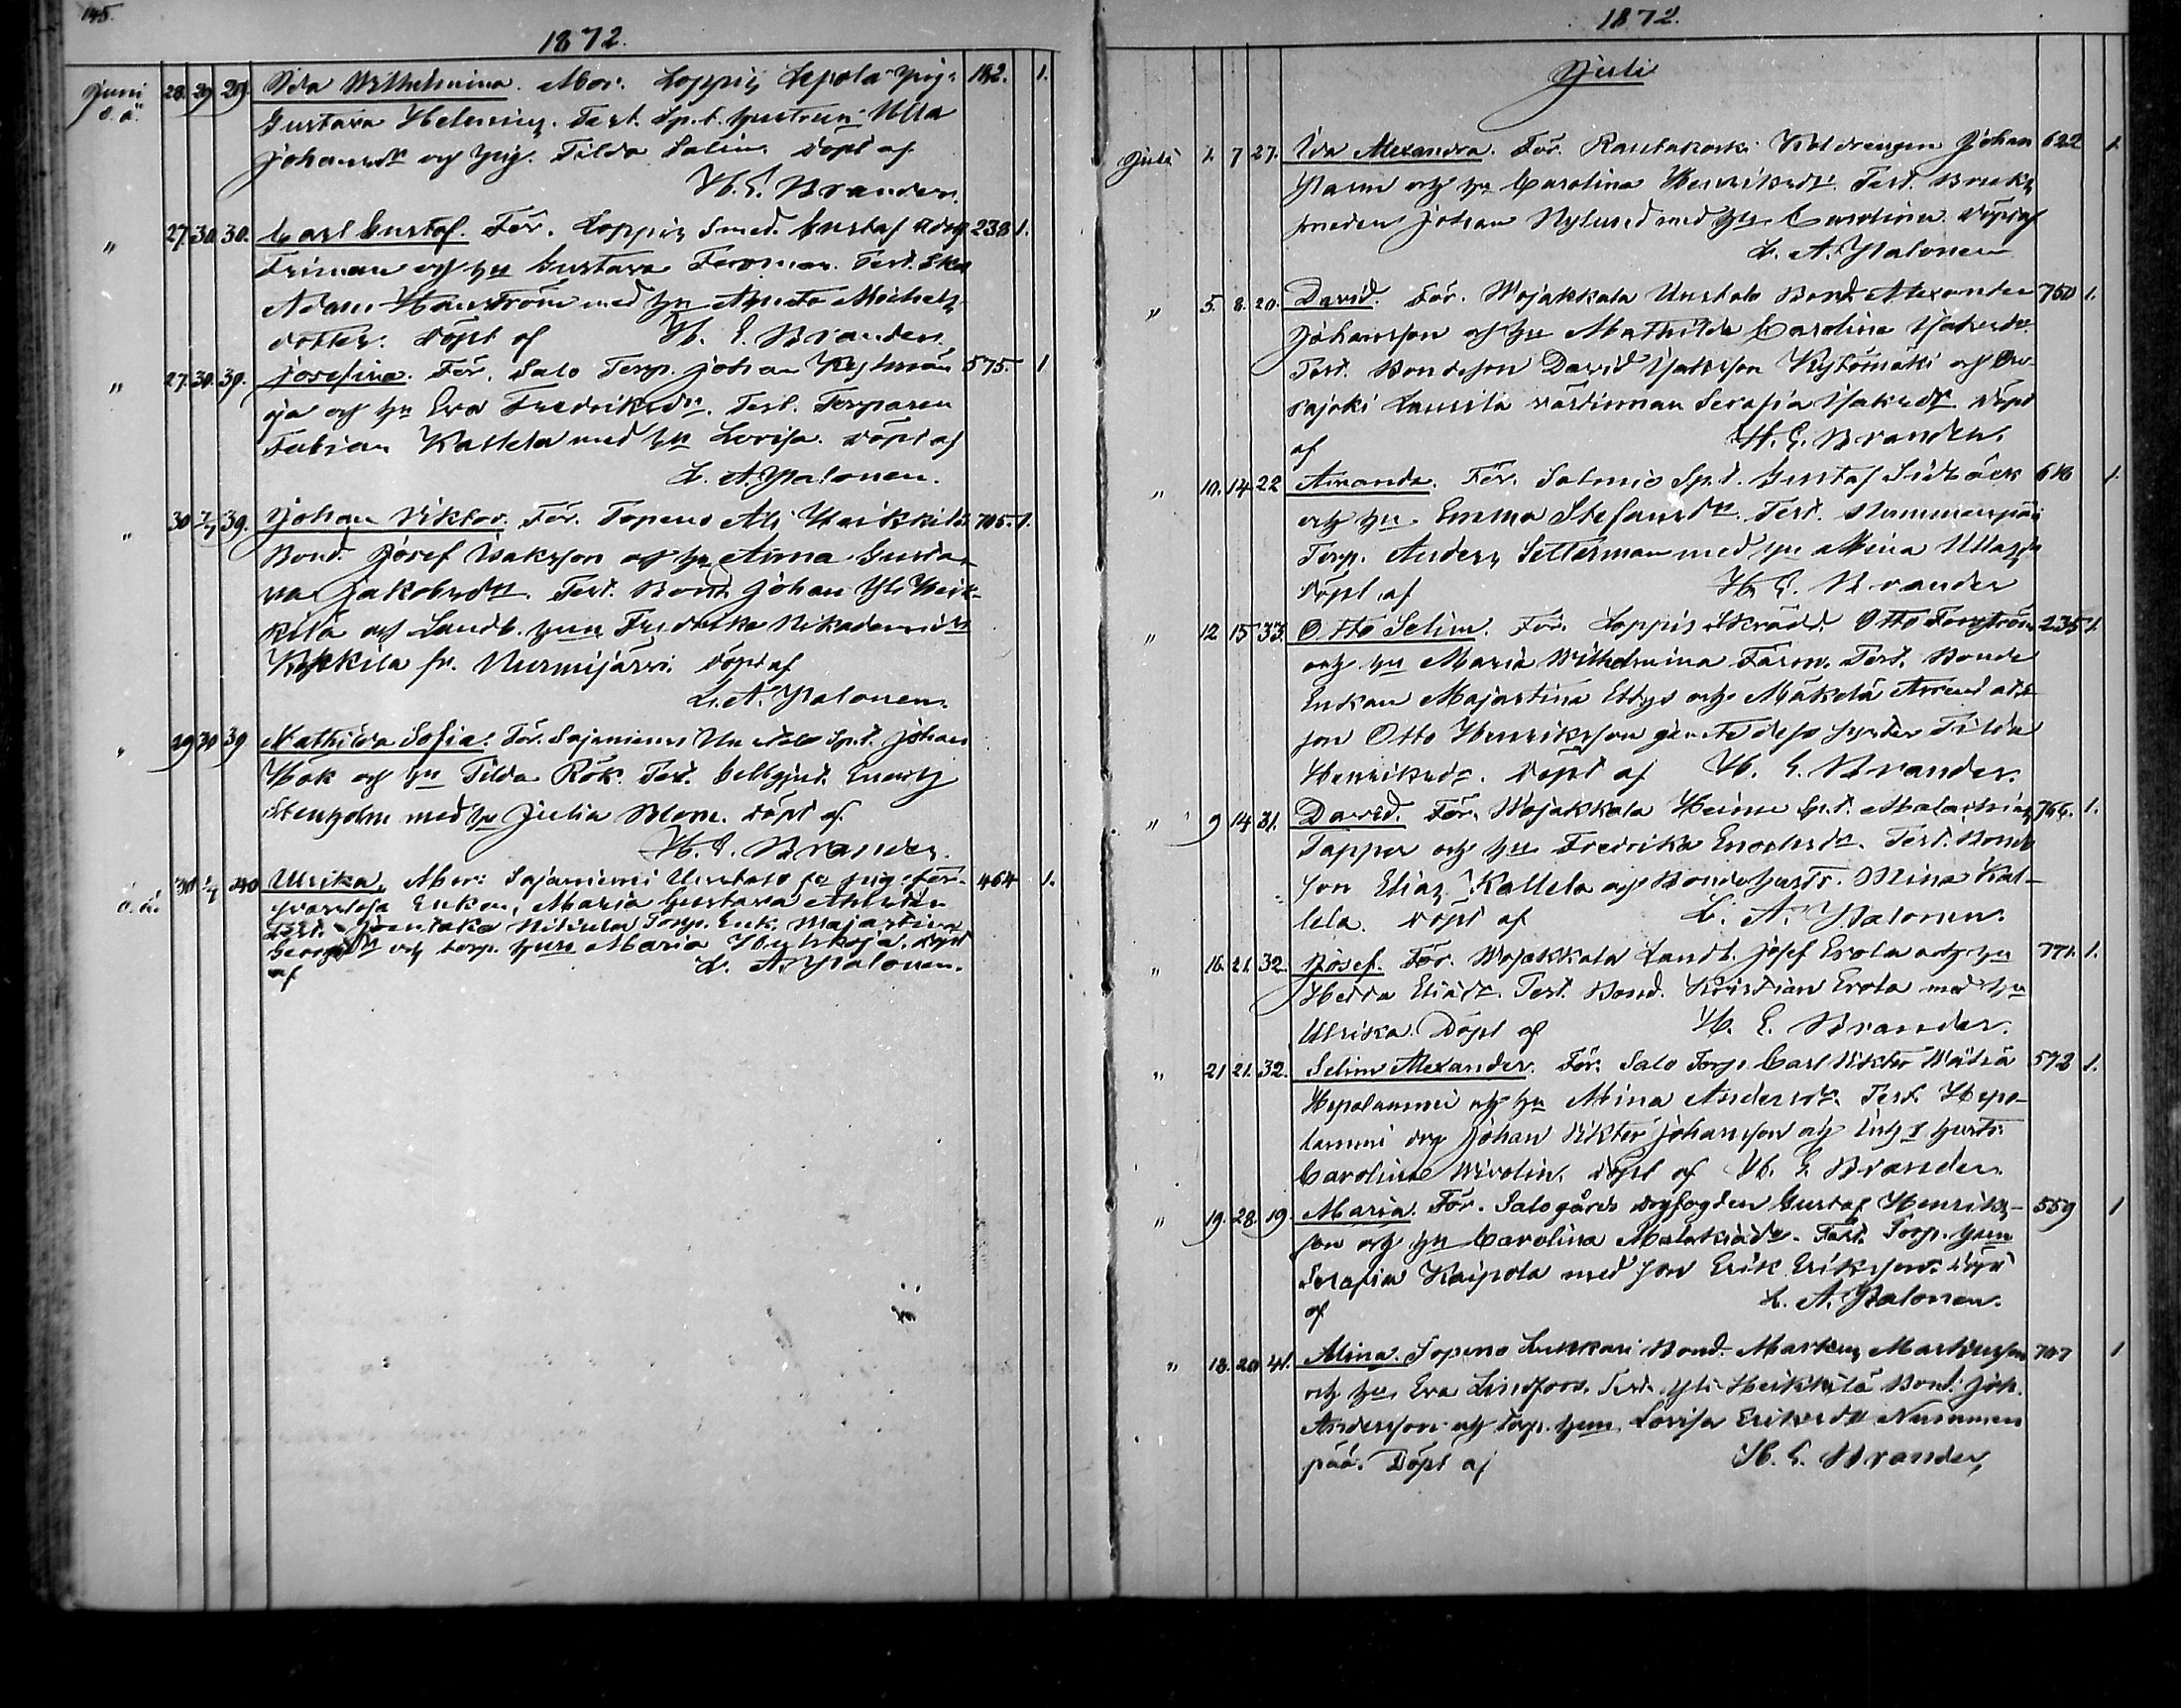 145.
1872.
Juni 28. 29 29. Ida Wilhelmina. Mor. Loppis Lepola pig. 142. 1.
d. å. Gustava Helenius. Test. Sp.t. hustrun Ulla
Johansdr och pig. Tilda Salin. Döpt af
H. E. Brander.
" 27. 30. 30. Carl Gustaf. För. Loppis Smed. Gustaf Adolf 238 1.
Friman och hu Gustava Forsman. Test.
Adam Hanström med hu Agneta Michels
dotter. Döpt af H. E. Brander.
" 27. 30. 39. Josefina. För. Salo Torp. Johan Kylmän 575. 1
oja och hu Eva Fredriksdr. Test. Torparen
Fabian Kallela med hu Lovisa. Döpt af
L. A. Palonen.
" 30 1/7 39. Johan Viktor. För. Topeno Ali Heikkilä 705. 1.
Bond. Josef Isaksson och hu Anna Gusta-
va Jakobsdr. Test. Bond. Johan Yli Heik-
kilä och Landb. hun Fredrika Nikodemidr
Keskkila fr. Nurmijärvi. Döpt af
L. A. Palonen.
" 29 30 39 Mathilda Sofia. För. Sajaniemi Uustalo Sp.t. Johan
Hök och hu Tilda Rök. Test.
Stenholm med hu Julia Blom. Döpt af
H. E. Brander.
d. å. 30 1/7 40 Ulrika, Mor: Sajaniemi Uustalo pig för-
svarslösa Enkan, Maria Gustava 464 1.
Test. Torp. Enk. Majastina
Georgsdr och torp. hun Maria Döpt
af L. A. Palonen.
1872.
Juli
Juli 1. 7 27. Ida Alexandra. För. Rautakoski Johan 622 1.
och hu Carolina Henriksdr. Test. Bruks
smeden Johan Nylund med hu Carolina. Döpt af
L. A. Palonen
" 5. 8. 20. David. För. Wojakkala Uustalo Bond. Alexander 760 1.
Johansson och hu Mathilda Carolina Isaksdr.
Test. Bondeson David Isaksson Kylömäki och
rajoki Laurila värdinnan Serafia Isaksdr Döpt
af H. E. Brander.
" 10. 14 22 Amanda. För. Salmis Sp.t. Gustaf Sidbäck 616 1.
och hu Emma Stefansdr. Test. Nummenpää
Torp. Anders Setterman med hu Mina
Döpt af H. E. Brander
" 12 15 33. Otto Selim. För. Loppis Skrädd. Otto Forsström 235 1.
och hu Maria Wilhelmina Färm. Test. Bonde
Enkan Majastina Ettys och Mäkelä
son Otto Henriksson Tilda
Henriksdr. Döpt af H. E. Brander.
" 9 14 31. David. För. Wojakkala Heimo Sp.t. Malachias 766. 1.
Tapper och hu Fredrika Enochsdr. Test. Bonde
son Elias Kallela och Bondehustr. Mina Kal-
lela. Döpt af L. A. Palonen.
" 16. 21. 32. Josef. För. Wojakkala Landb. Josef Erola och hu 771. 1.
Hedda Eliädr. Test. Bond. Kristian Erola med hu
Ulrika. Döpt af H. E. Brander.
" 21 21. 32. Selim Alexander. För. Salo Torp. Carl Viktor Wätiä 592 1.
Hepolammi och hu Mina Andersdr. Test. Hepo-
lammi drg Johan Viktor Johansson och Inh s hustr.
Carolina Nivolin. Döpt af H. E. Brander.
" 19. 28. 19. Maria. För. Salogårds Gustaf Henriks- 559 1
son och hu Carolina Malakiadr. Test. Torp. hun
Serafia Kaipola med son Erik Eriksson. Döpt
af L. A. Palonen.
" 18. 20 41. Alina. Topeno Lukkari Bond. Markus Markusson 707 1
och hu Eva Lindfors. Test. Yli Heikkilä Bond. Joh.
Andersson och torp. hun Lovisa Eriksdr Nummen
pää. Döpt af H. E. Brander,